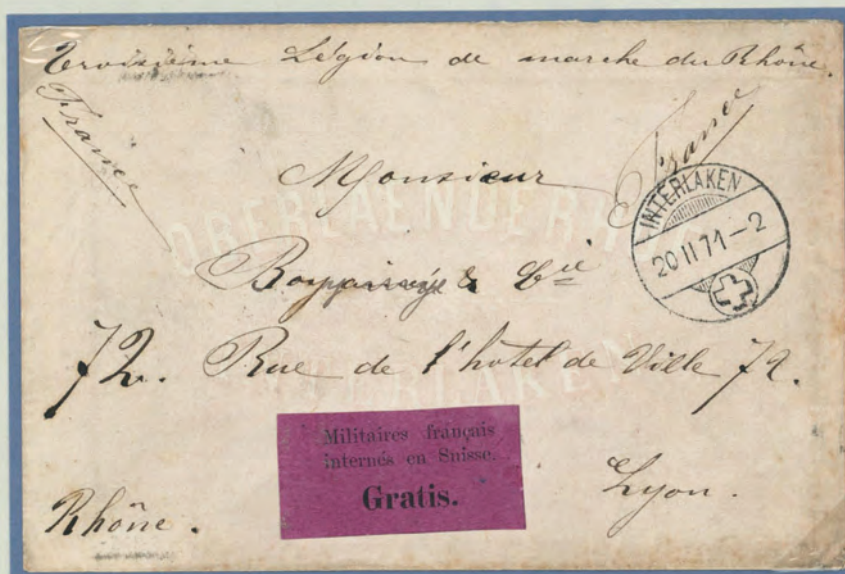 Troisième Légion de marche du Rhône.
France
France
Monsieur
INTERLAKEN
20 II 71 - 2
OBERLAENDERHOF
& Cie
72. Rue de l'hôtel de Ville 72.
INTERLAKEN
Militaires français
internés en Suisse.
Gratis.
Lyon.
Rhône.